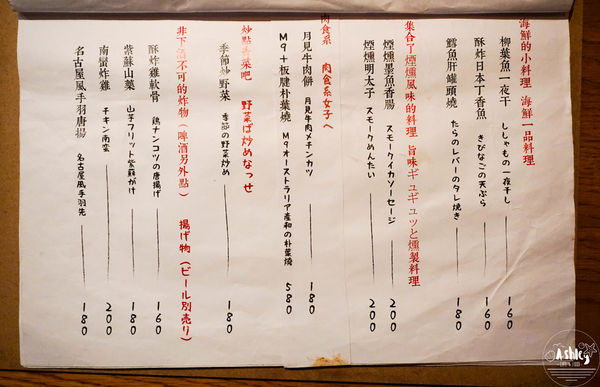 海鮮的小料理 海鮮一品料理
柳葉魚一夜干 ししゃもの一夜干し 160
酥炸日本丁香魚 きびなごの天ぷら 160
鱈魚肝罐頭燒 たらのレバーのタレ焼き 180
集合了煙燻風味的料理 旨味ギュギュッと燻製料理
煙燻墨魚香腸 スモークイカソーセージ 200
煙燻明太子 スモークめんたい 200
肉食系 肉食系女子へ
月見牛肉餅 月見牛肉メチンカツ 180
M9+板腱朴葉燒 M9オーストラリア産和の朴葉燒 580
炒點青菜吧 野菜ば炒めなっせ
季節炒野菜 季節の野菜炒め 180
非下酒不可的炸物(啤酒另外點) 揚げ物(ビール別売り)
酥炸雞軟骨 鶏ナンコツの唐揚げ 160
紫蘇山藥 山芋フリット紫蘇がけ 180
南蠻炸雞 チキン南蛮 200
名古屋風手羽唐揚 名古屋風手羽先 180
Ashley